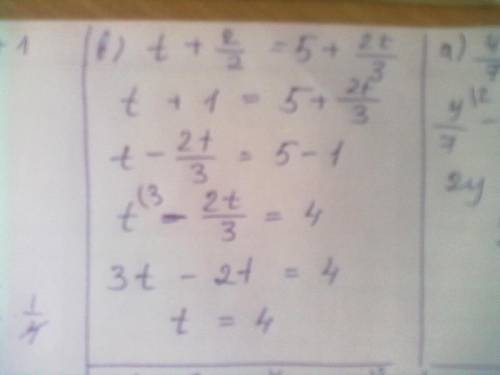 + 1
в) t + 2/2 = 5 + 2t/3
t + 1 = 5 + 2t/3
t - 2t/3 = 5 - 1
t⁽³ - 2t/3 = 4
3t - 2t = 4
t = 4
1/4
а) y/7
y/7 ⁽² -
2y